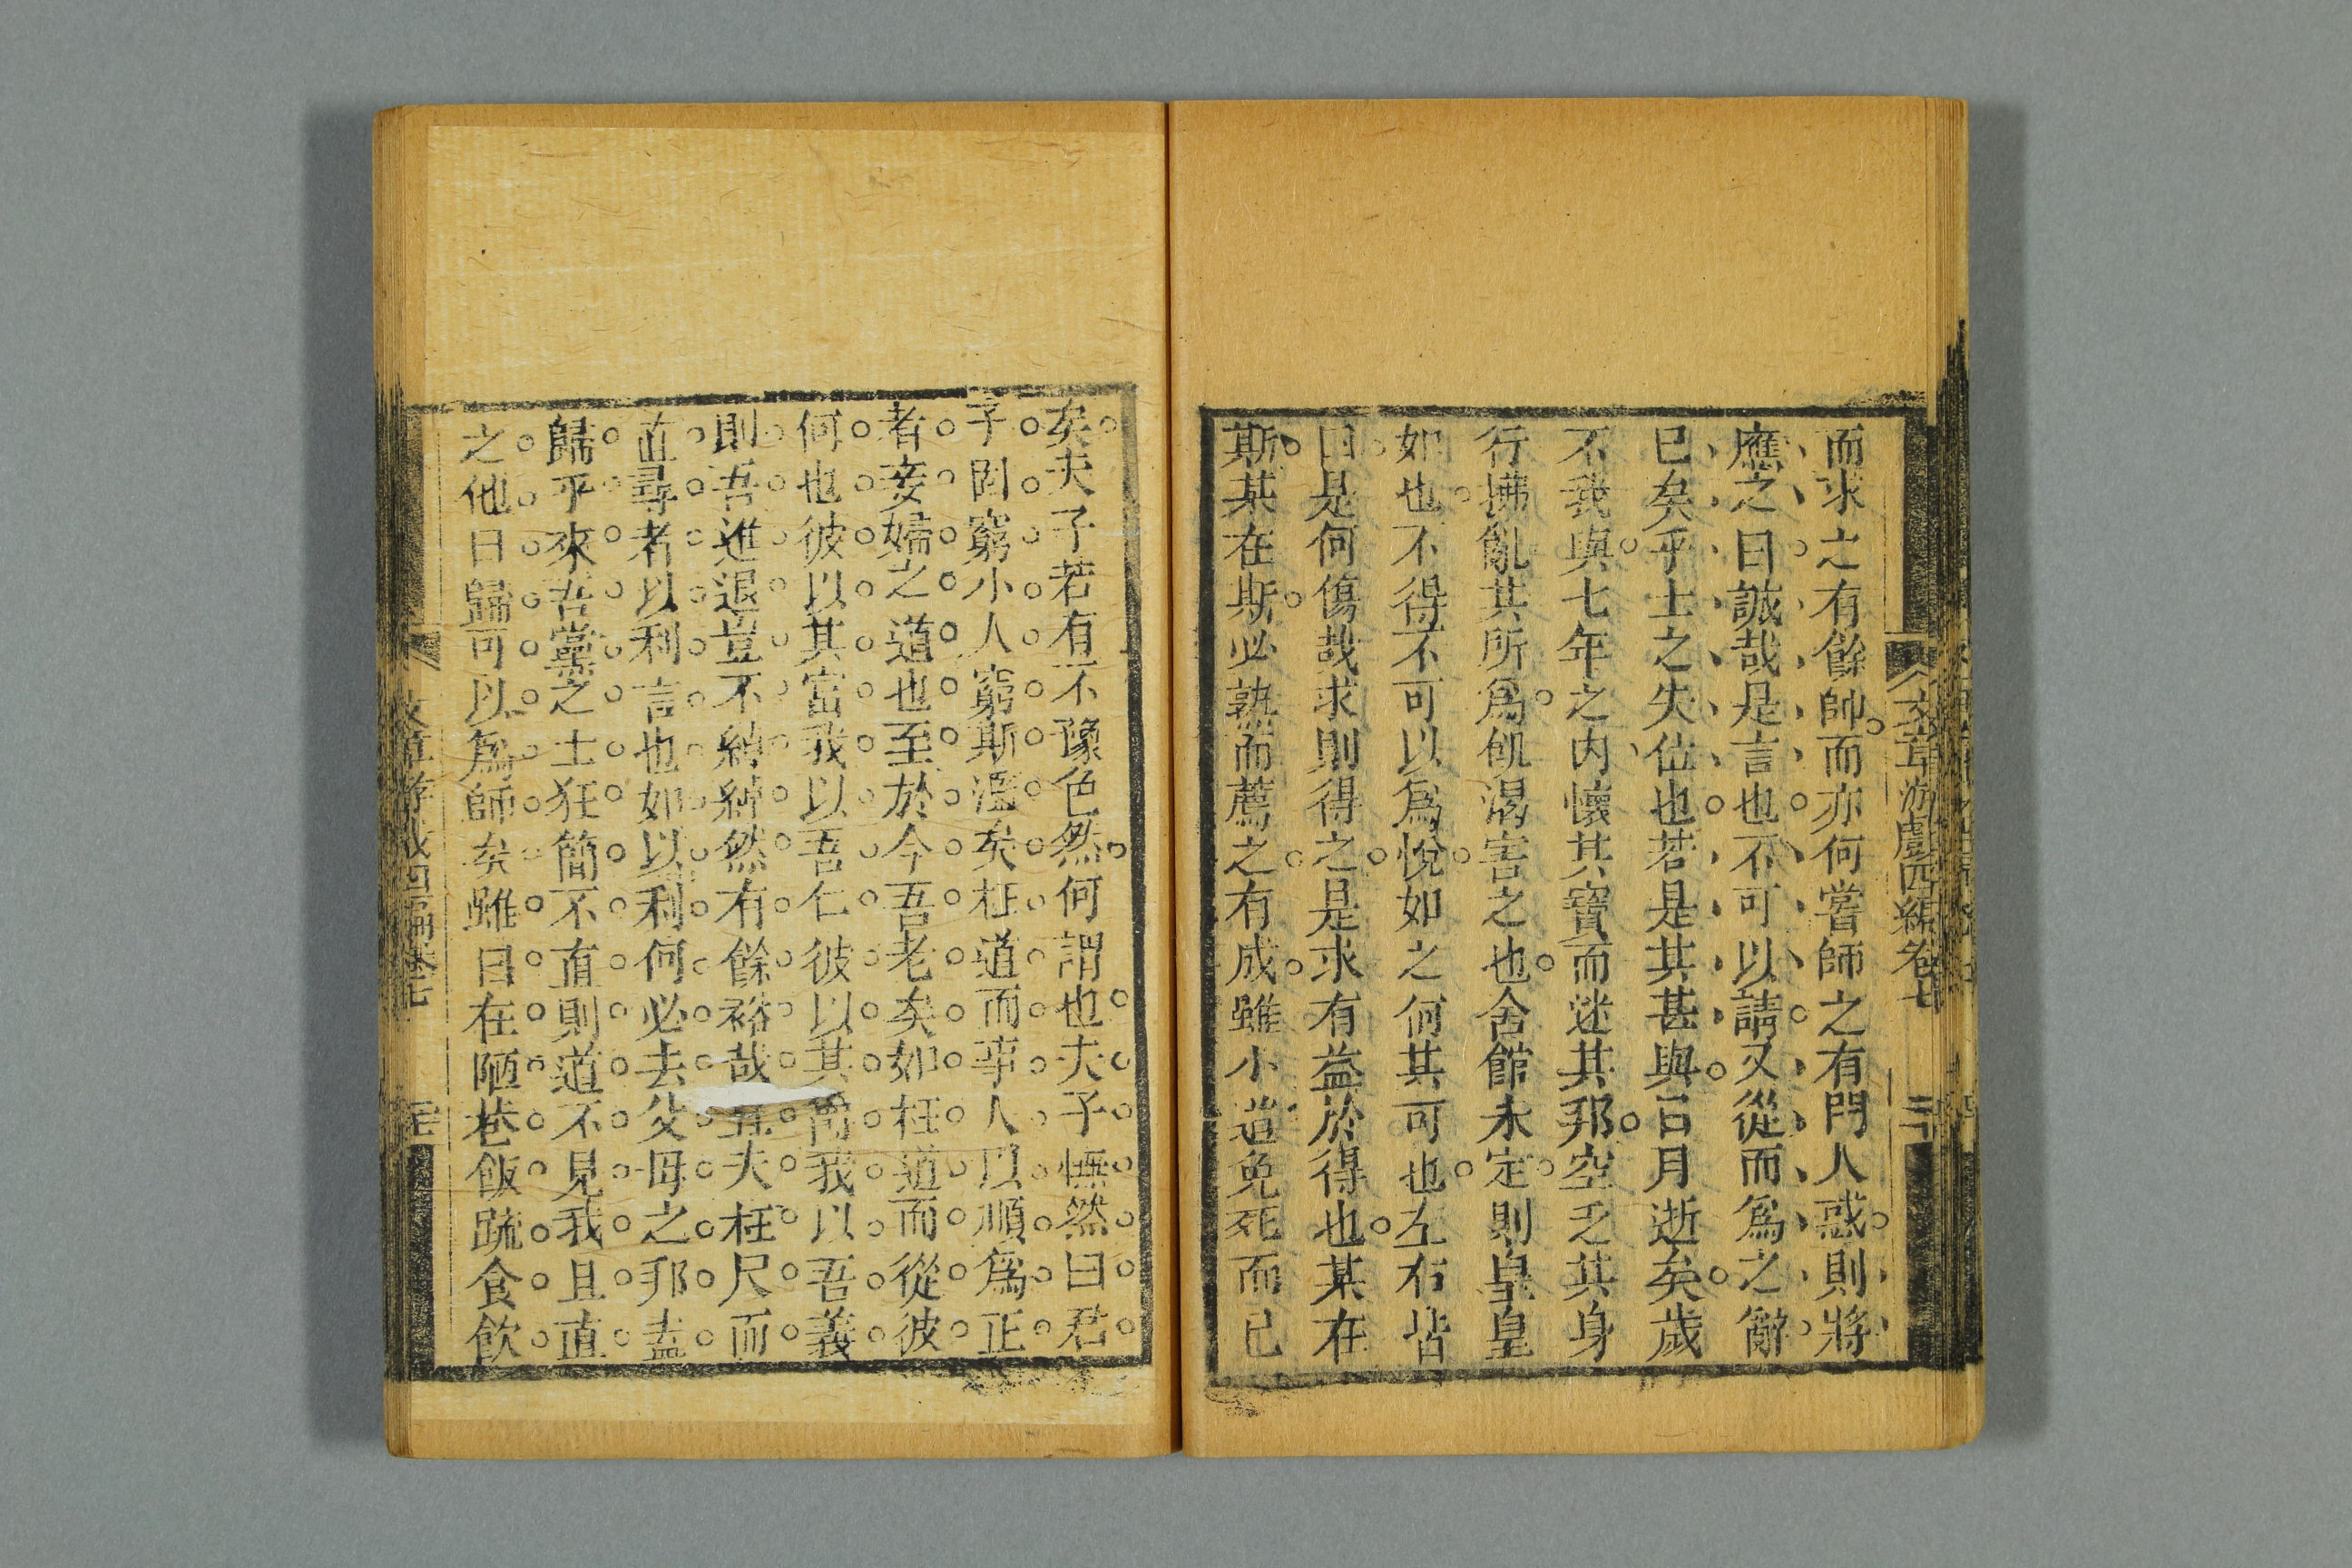 文章游戲四編卷七
二十
而求之有餘師而亦何嘗師之有門人惑則將
應之曰誠哉是言也不可以請又從而爲之辭
已矣乎士之失位也若是其甚與日月逝矣歲
不我與七年之内懷其寳而迷其邦空乏其身
行拂亂其所爲飢渴害之也舍館未定則皇皇
如也不得不可以爲悅如之何其可也左右皆
曰是何傷哉求則得之是求有益於得也某在
斯某在斯必熟而薦之有成雖小道免死而已
矣夫子若有不豫色然何謂也夫子憮然曰君
子固窮小人窮斯濫矣枉道而事人以順爲正
者妾婦之道也至於今吾老矣如枉道而從彼
何也彼以其富我以吾仁彼以其爵我以吾義
則吾進退豈不綽綽然有餘裕哉且夫枉尺而
直尋者以利言也如以利何必去父母之邦盍
歸乎來吾黨之士狂簡不直則道不見我且直
之他日歸可以爲師矣雖曰在陋巷飯疏食飲
文章游戲四編卷七